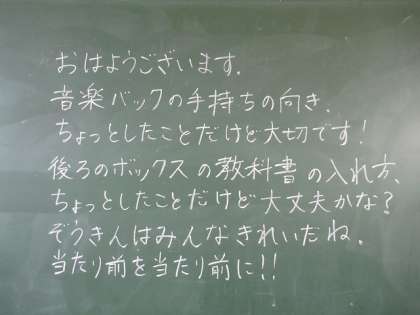 おはようございます.
音楽バックの手持ちの向き.
ちょっとしたことだけど大切です!
後ろのボックスの教科書の入れ方、
ちょっとしたことだけど大丈夫かな?
ぞうきんはみんなきれいだね.
当たり前を当たり前に!!